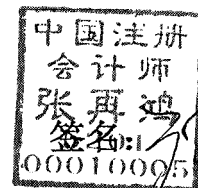 中国注册
会计师
张再鸿
签名:
00010005